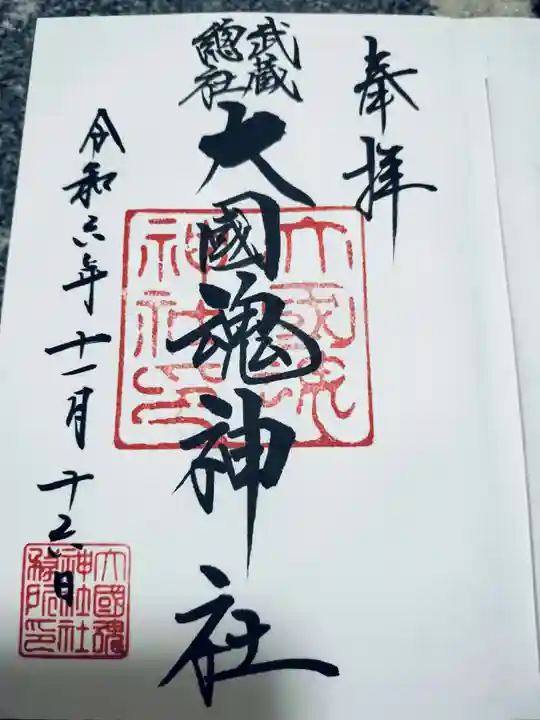 奉拝
武蔵
總社
大國魂神社
大國魂
神社印
令和六年十一月十六日
大國魂
神社社
務所印